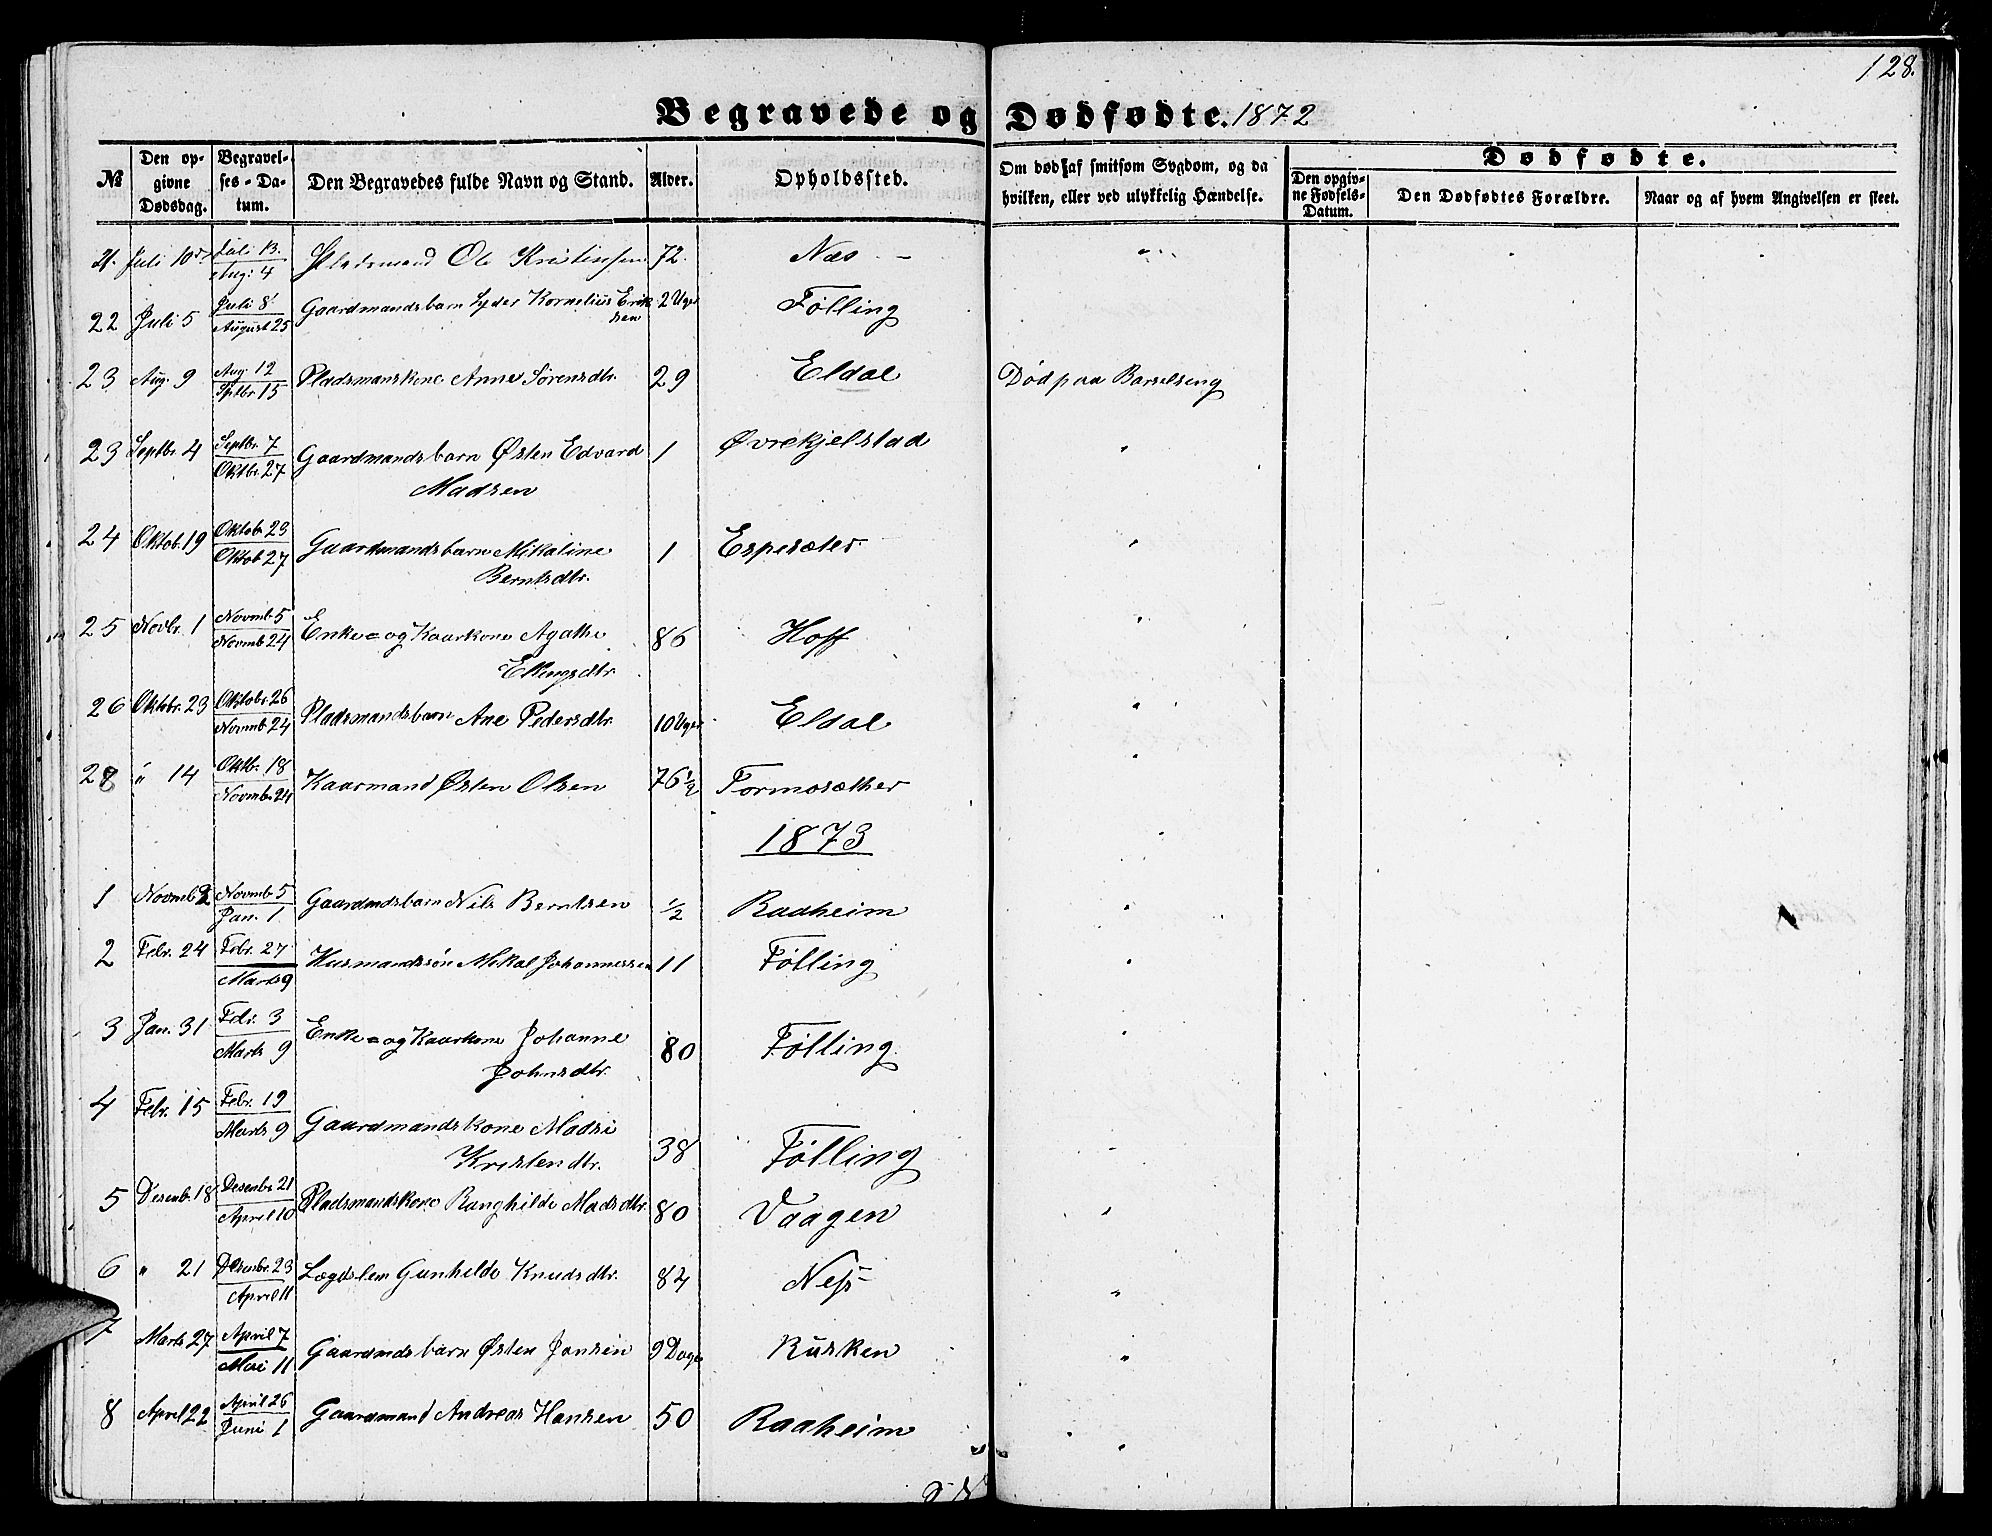 128.
Begravede og Dødfødte. 1872
№ | Den opgivne Dødsdag. | Begravelses-Datum. | Den Begravedes fulde Navn og Stand. | Alder. | Opholdssted. | Om død af smitsom Sygdom, og da hvilken, eller ved ulykkelig Hændelse. | Dødfødte. | Den opgivne Fødsels-Datum. | Den Dødfødtes Forældre. | Naar og af hvem Angivelsen er skeet.
21. Juli 10de Juli 13. / Aug: 4 Pladsmand Ole Kristensen 72. Næs "
22 Juli 5 Juli 8 / August 25 Gaardmandsbarn Lyder Kornelius Eriksen 2 Uger Følling
23 Aug. 9 Aug. 12 / Sptbr 15 Pladsmanskone Anne Sørensdtr. 29 Eldal Død paa Barselseng
23 Septbr. 4 Septbr. 7 / Oktbr. 27 Gaardmandsbarn Østen Edvard 1 Øvrekjelstad "
Madsen
24 Oktob. 19 Oktob. 23 / Oktob 27 Gaardmandsbarn Mikaline 1 Espesæter "
Berntsdtr.
25 Novbr. 1 Novmb 5 / Novmb 24 Enke= og Kaarkone Agathe 86 Hoff "
Ellengsdtr.
26 Oktobr. 23 Oktobr. 26 / Novmb 24 Pladsmandsbarn Ane Pedersdtr. 10 Uger Eldal "
28 " 14 Oktb. 18 / Novmb. 24 Kaarmand Østen Olsen 76½ Formosæther "
1873
1 Novmb 2 Novmb 5 / Jan. 1 Gaardmdsbarn Nils Berntsen ½ Raaheim "
2 Febr. 24 Febr. 27 / Marts 9 Husmandssøn Mikal Johannessen 11 Følling "
3 Jan. 31 Febr. 3 / Marts 9 Enke= og Kaarkone Johanne 80 Følling. "
Johnsdtr.
4 Febr. 15 Febr. 19 / Marts 9 Gaardmandskone Madsi
Kristendtr. 38 Følling "
5 Desemb. 18 Desenbr 21 / April 10 Pladsmandskone Ranghilde Madsdtr. 80 Vaagen "
6 " 21 Desenbr. 23 / April 11 Lægdslem Gunhilde Knudsdtr. 84 Ness "
7 Marts 27 April 7 / Mai 11 Gaardmdsbarn Østen Jansen 9 Dage Kursken "
8 April 22 April 26 / Juni 1 Gaardmand Andreas Hansen 50 Raaheim "